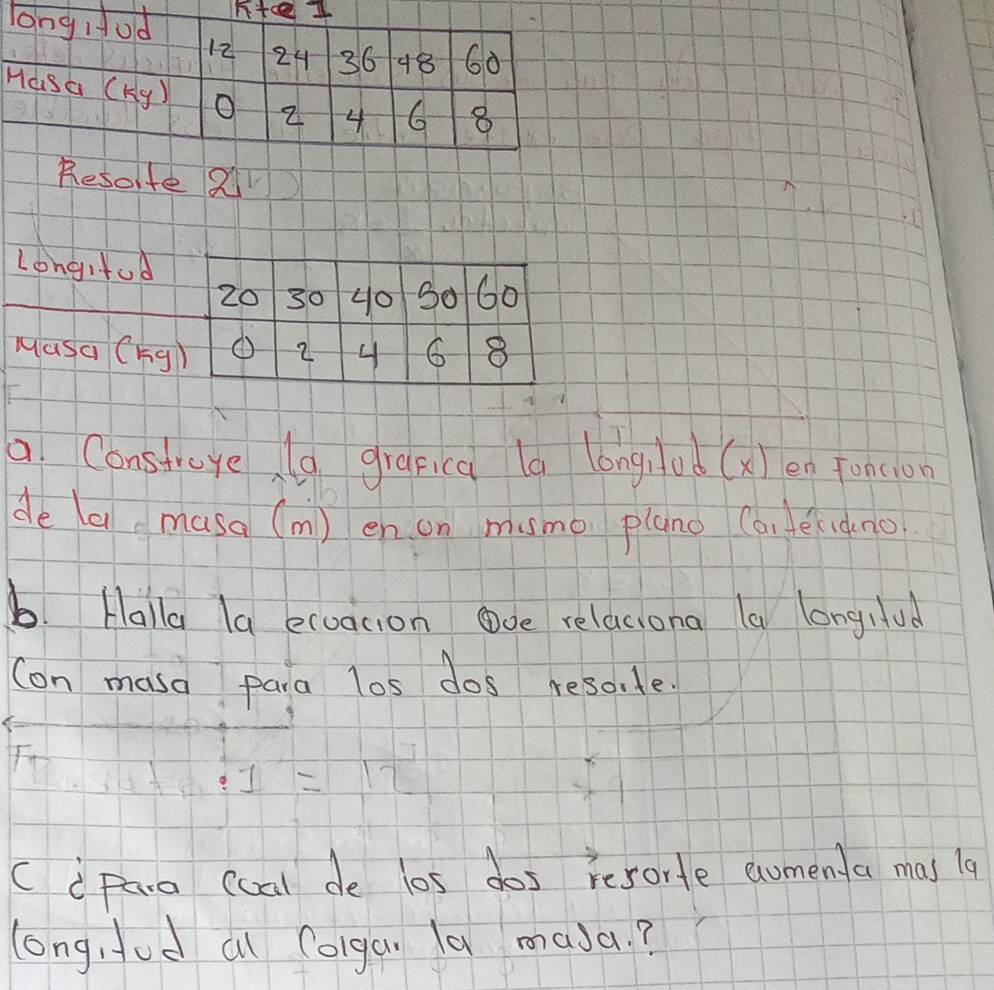 longitud
12 24 36 48 60
Masa (Kg) 0 2 4 6 8
Resorte 2
Longitud
20 30 40 50 60
Masa (Kg) 0 2 4 6 8
a. Construye la grafica la longitud (x) en Funcion
de la masa (m) en un mismo plano Carteciano.
b. Halla la ecuacion Que relaciona la longitud
Con masa para los dos resorte.
1 = 12
C ¿Para cual de los dos resorte aumenta mas la
longitud al Colgar la masa.?